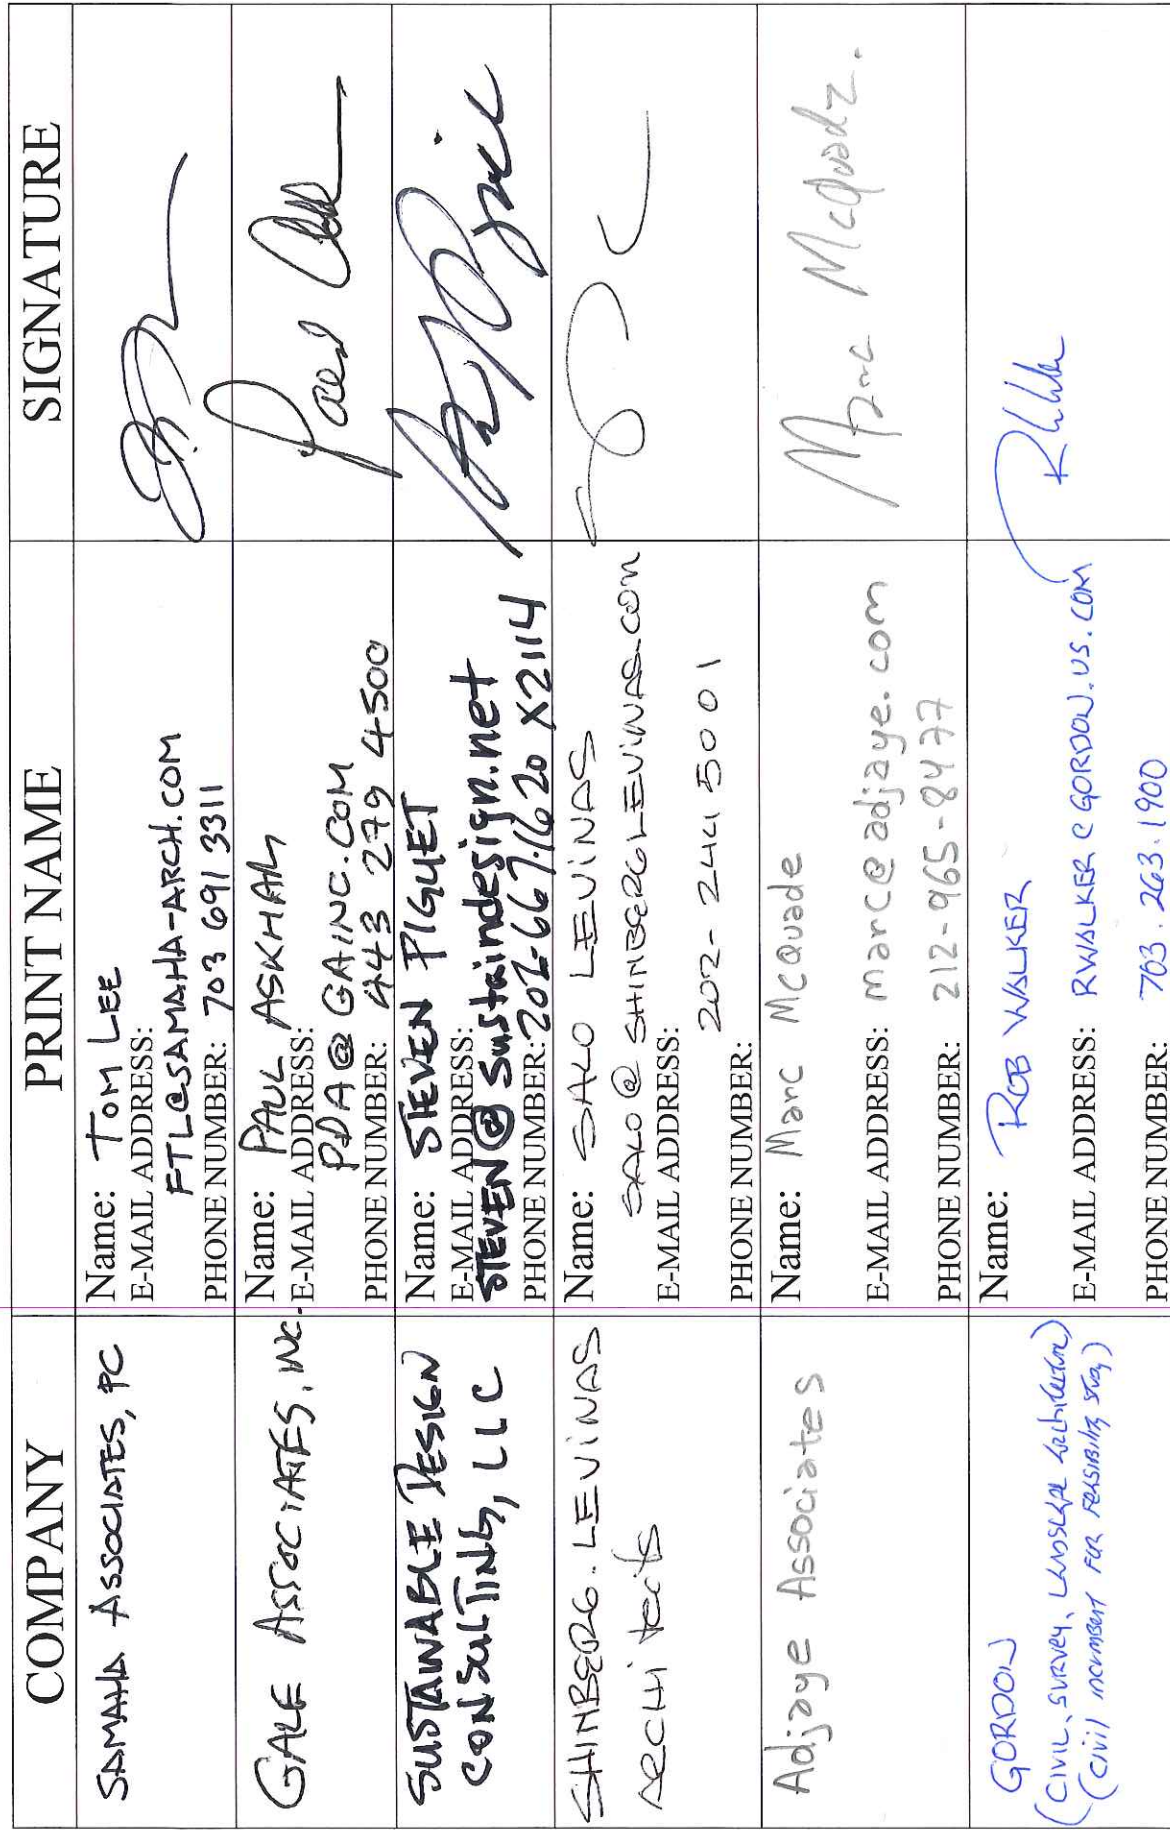 COMPANY
PRINT NAME
SIGNATURE
SAMAHA ASSOCIATES, PC
Name: TOM LEE
E-MAIL ADDRESS:
FTL@SAMAHA-ARCH.COM
PHONE NUMBER: 703 691 3311
GALE ASSOCIATES, INC.
Name: PAUL ASKHAM
E-MAIL ADDRESS:
PDA@GAINC.COM
PHONE NUMBER: 443 279 4500
SUSTAINABLE DESIGN
CONSULTING, LLC
Name: STEVEN PIGUET
E-MAIL ADDRESS:
STEVEN@sustaindesign.net
PHONE NUMBER: 202-667-1620 X2114
SHINBERG.LEVINAS
ARCHITECTS
Name: SALO LEVINAS
SALO@SHINBERGLEVINAS.COM
E-MAIL ADDRESS:
202-244 5001
PHONE NUMBER:
Adjaye Associates
Name: Marc McQuade
Marc McQuade.
E-MAIL ADDRESS: marc@adjaye.com
PHONE NUMBER: 212-965-8477
GORDON
(CIVIL, SURVEY, LANDSCAPE Architecture)
(CIVIL INCUMBENT FOR FEASIBILITY STUDY)
Name: ROB WALKER
E-MAIL ADDRESS: RWALKER@GORDON.US.COM
PHONE NUMBER: 703.263.1900